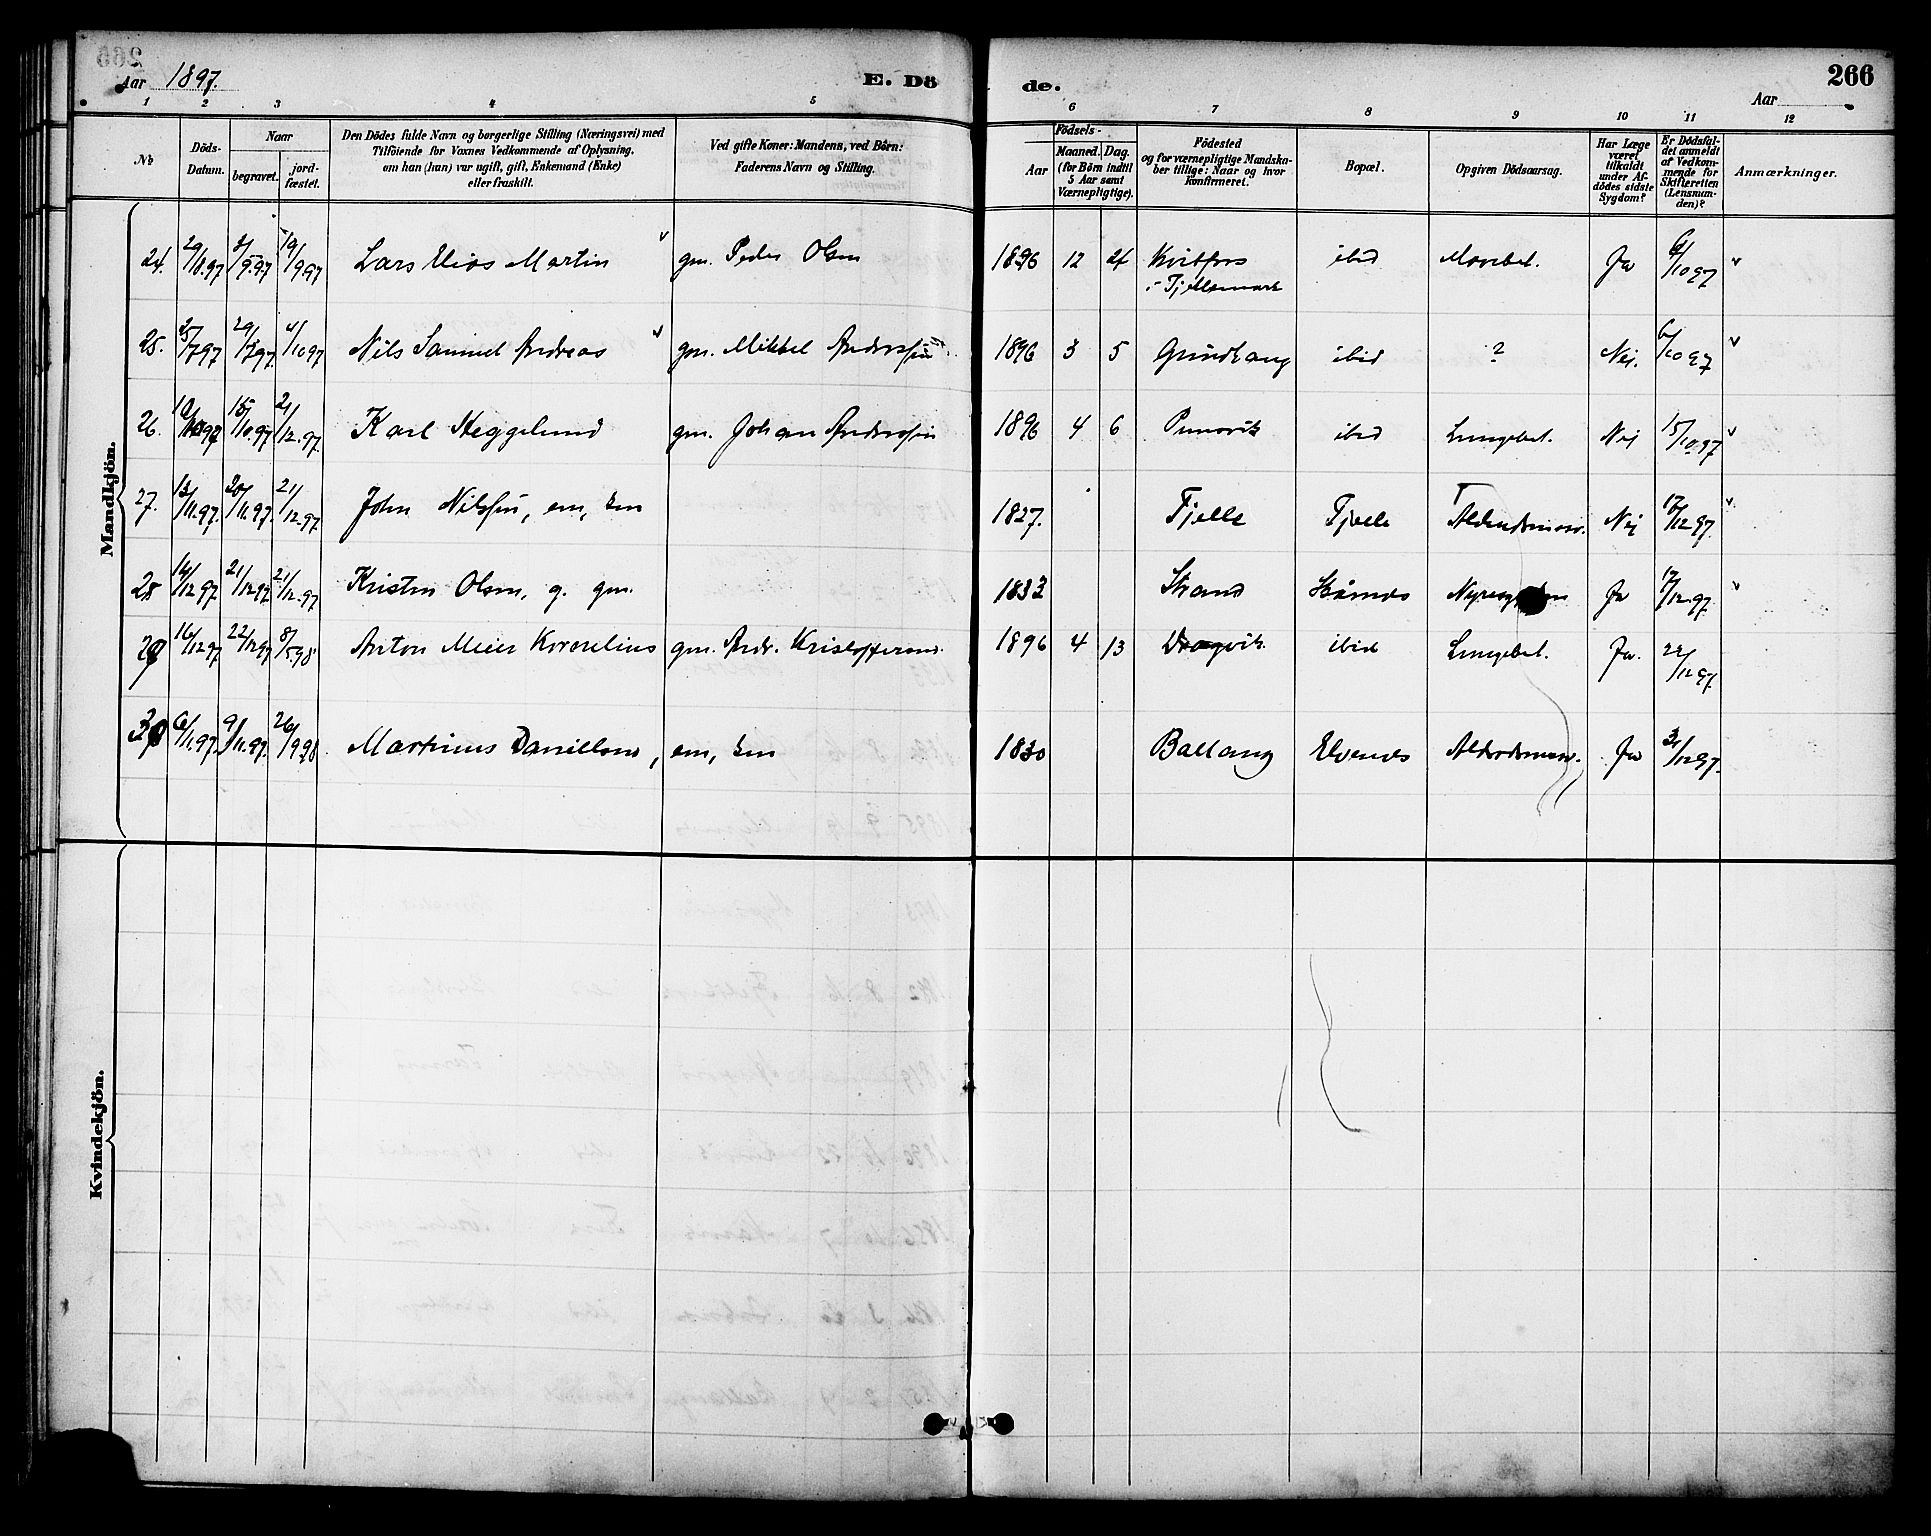 266
Aar 1897.
E. Döde.
Aar
1 2 3 4 5 6 7 8 9 10 11 12
No
Döds-Datum.
Naar
begravet.
jord-fæstet.
Den Dödes fulde Navn og borgerlige Stilling (Næringsvei) med
Tilföiende for Voxnes Vedkommende af Oplysning,
om han (hun) var ugift, gift, Enkemand (Enke)
eller fraskilt.
Ved gifte Koner: Mandens, ved Börn:
Faderens Navn og Stilling.
Födsels-
Aar
Maaned. Dag.
(for Börn indtil
5 Aar samt
Værnepligtige).
Födested
og for værnepligtige Mandska-
ber tillige: Naar og hvor
Konfirmeret.
Bopæl.
Opgiven Dödsaarsag.
Har Læge
været
tilkaldt
under Af-
dödes sidste
Sygdom?
Er Dödsfal-
det anmeldt
af Vedkom-
mende for
Skifteretten
(Lensman-
den)?
Anmærkninger.
Mandkjön.
24. 29/8.97 3/9.97 19/9 97 Lars Elias Martin gm. Peder Olsen 1896 12 24 Kvitfors i Fjellemark ibid Mavebet. Ja 6/10 97
25. 25/7 97 29/7 97 4/10 97 Nils Samuel Andreas gm. Mikkel Anderssen 1896 3 5 Grundvang ibid ? Nei. 6/10 97
26. 10/10 97 15/10.97 21/12.97 Karl Heggelund gm. Johan Anderssen 1896 4 6 ibid Lungebet. Nei 15/10.97
27. 13/11.97. 20/11.97. 21/12.97 John Nilssen, em, 1827. Fjelle Fjelle Alderdomssv. Nei 17/12 97.
28. 14/12 97. 21/12 97 21/12.97 Kristen Olsen, g. gm. 1833 Strand Skånes Nyresygdom Ja 17/12.97.
29 16/12 97 22/12 97 8/5.98 Anton Meier Kornelius gm. Andr. Kristoffersen. 1896 4 13 ibid Lungebet. Ja. 22/12 97.
30 6/11.97. 9/11.97. 26/9.98. Martinus Daniellsen, em, 1830 Ballang Elvenes Alderdomssv. Ja 31/12 97.
Kvindekjön.